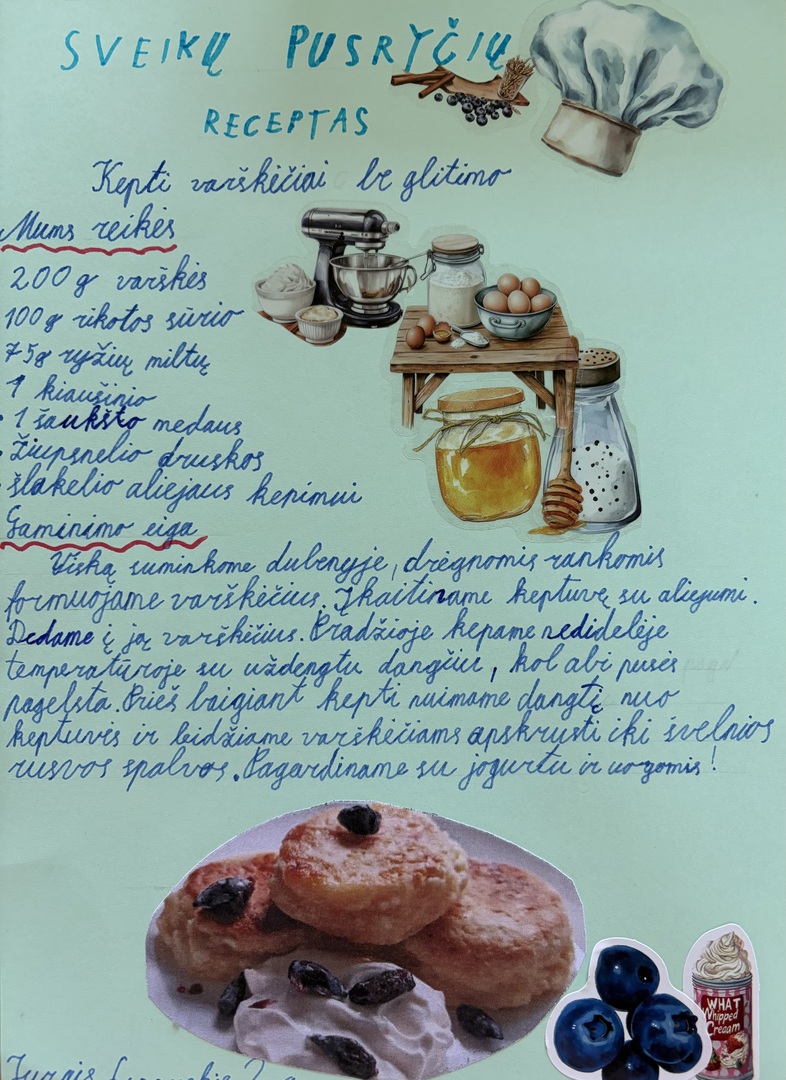 SVEIKŲ PUSRYČIŲ
RECEPTAS
Kepti varškėčiai be glitimo
Mums reikės
200 g varškės
100g rikotos sūrio
75g ryžių miltų
1 kiaušinio
1 šaukšto medaus
Žiupsnelio druskos
šlakelio aliejaus kepimui
Gaminimo eiga
Viską suminkome dubenyje, drėgnomis rankomis
formuojame varškėčius. Įkaitiname keptuvę su aliejumi.
Dedame į ją varškėčius. Pradžioje kepame nedidelėje
temperatūroje su uždengtu dangčiu, kol abi pusės
pagelsta. Prieš baigiant kepti nuimame dangtį nuo
keptuvės ir leidžiame varškėčiams apskrusti iki švelnios
rusvos spalvos. Pagardiname su jogurtu ir uogomis!
WHAT
Whipped
Cream